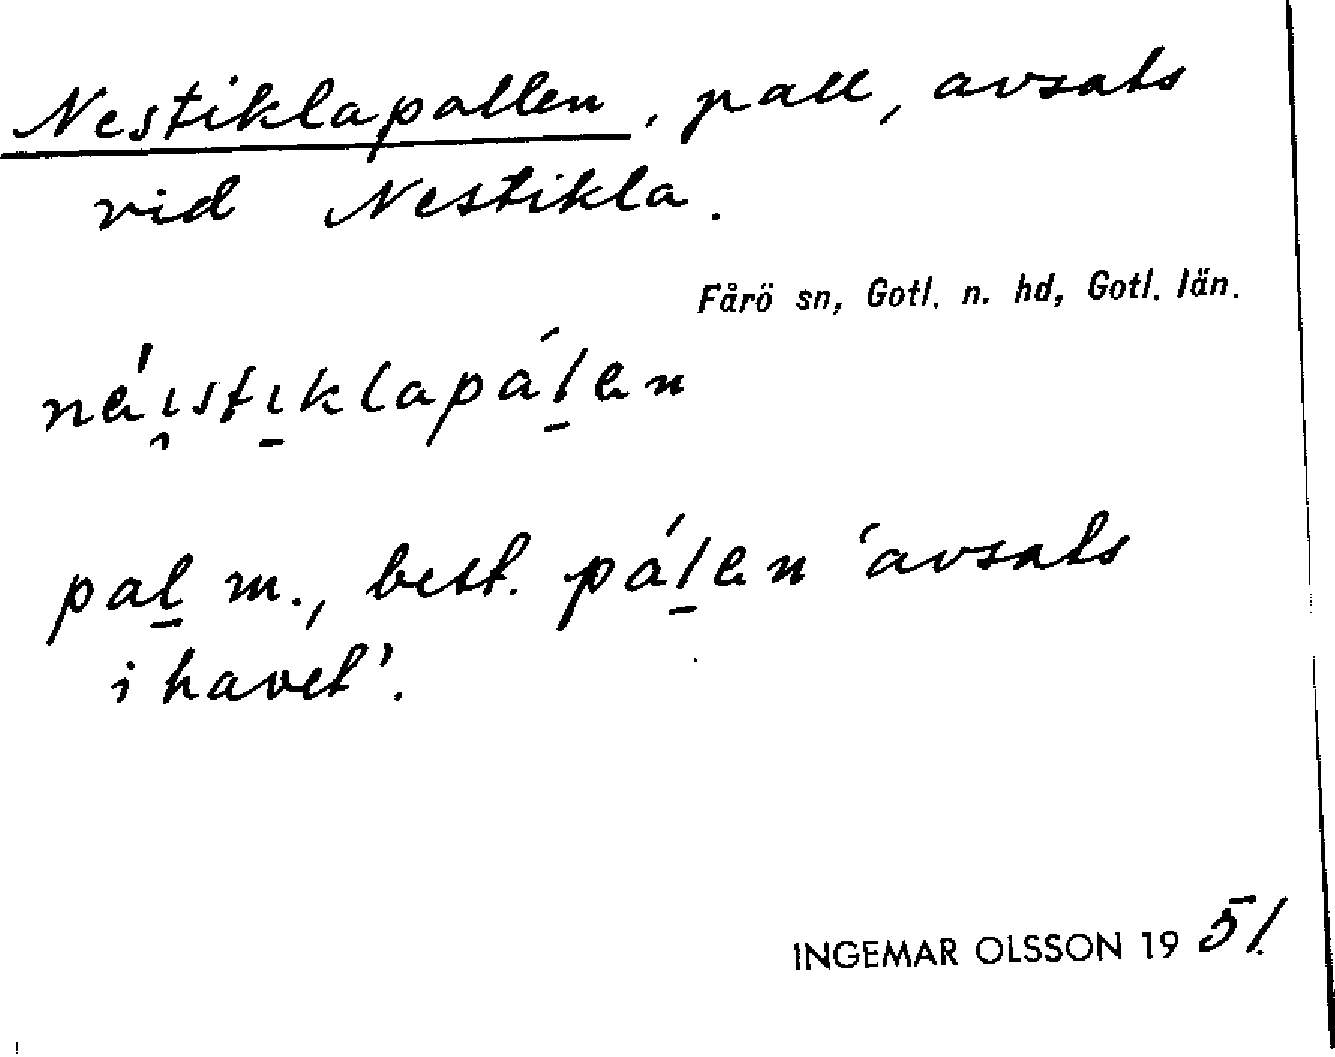 Nestiklapallen, pall, avsats
vid Nestikla.
Fårö sn, Gotl. n. hd, Gotl. län.
nä́ı̯stı̱klapáḻen
paḻ m., best. páḻen 'avsats
i havet'.
INGEMAR OLSSON 1951.